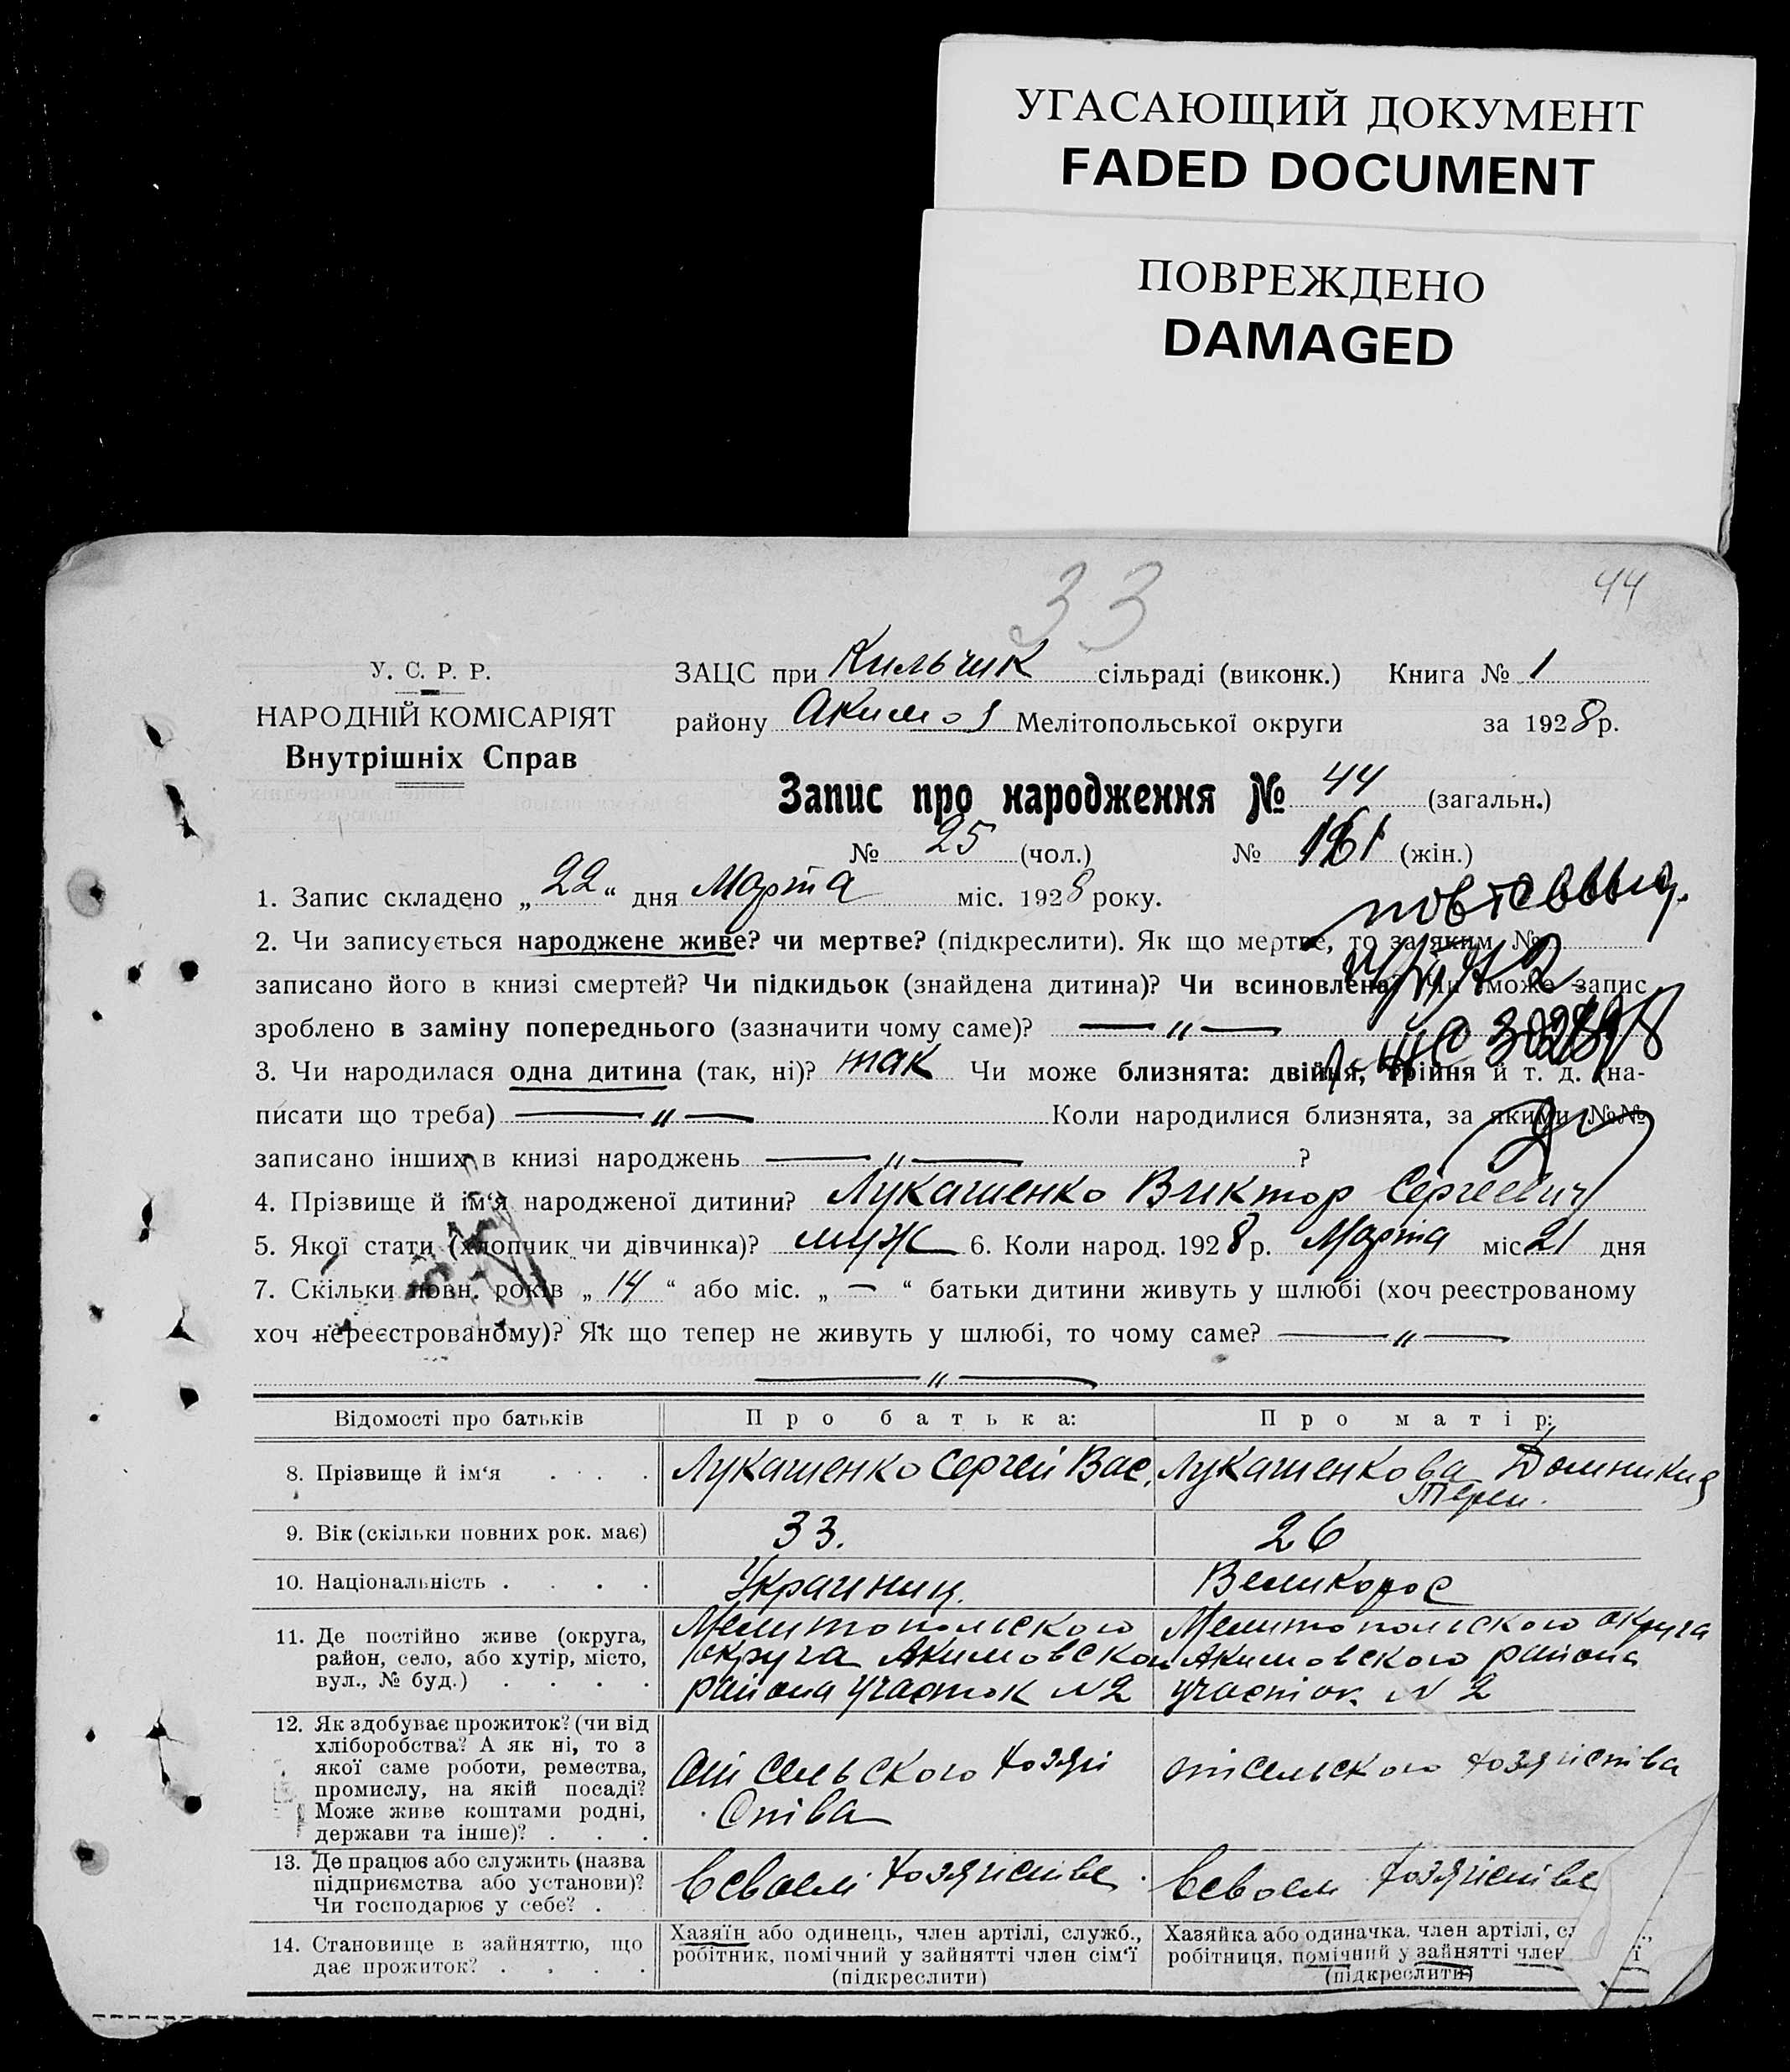 УГАСАЮЩИЙ ДОКУМЕНТ
FADED DOCUMENT
ПОВРЕЖДЕНО
DAMAGED
33
44
У. С. Р. Р.
НАРОДНІЙ КОМІСАРІЯТ
Внутрішніх Справ
ЗАЦС при Кильчик сільраді (виконк.) Книга № 1
району Акимов Мелітопольської округи за 1928 р.
Запис про народження № 44 (загальн.)
№ 25 (чол.) № (жін.)
1. Запис складено „22“ дня Марта міс. 1928 року.
2. Чи записується народжене живе? чи мертве? (підкреслити). Як що мертве, то за яким №
записано його в книзі смертей? Чи підкидьок (знайдена дитина)? Чи всиновлена? Чи може запис
зроблено в заміну попереднього (зазначити чому саме)? — „ —
3. Чи народилася одна дитина (так, ні)? так Чи може близнята: двійня, трійня й т. д. (на-
писати що треба) — „ — Коли народилися близнята, за якими №№
записано інших в книзі народжень — „ — ?
4. Прізвище й ім‘я народженої дитини? Лукашенко Виктор Сергеевич
5. Якої стати (хлопчик чи дівчинка)? муж 6. Коли народ. 1928 р. Марта міс. 21 дня
7. Скільки повн. років „14“ або міс. „—“ батьки дитини живуть у шлюбі (хоч реєстрованому
хоч нереєстрованому)? Як що тепер не живуть у шлюбі, то чому саме? — „ —
— „ —
Відомості про батьків Про батька: Про матір:
8. Прізвище й ім‘я . . . . Лукашенко Сергей Вас. Лукашенкова Домникия
Терен.
9. Вік (скільки повних рок. має) 33. 26
10. Національність . . . . Украинец Великорос
11. Де постійно живе (округа, район, село, або хутір, місто, вул., № буд.) . . . .
Мелитопольского округа Акимовском района участок N2
Мелитопольского округа Акимовского района участок N 2
12. Як здобуває прожиток? (чи від хліборобства? А як ні, то з якої саме роботи, ремества, промислу, на якій посаді? Може живе коштами родні, держави та інше)? . . .
от сельского хозяй
ства
от сельского хозяйства
13. Де працює або служить (назва підприємства або установи)? Чи господарює у себе? .
в своем хозяйстве.
в своем хозяйстве
14. Становище в зайняттю, що дає прожиток? . . . .
Хазяїн або одинець, член артілі, служб., робітник, помічний у зайнятті член сім‘ї (підкреслити)
Хазяйка або одиначка, член артілі, робітниця, помічний у зайнятті член (підкреслити)